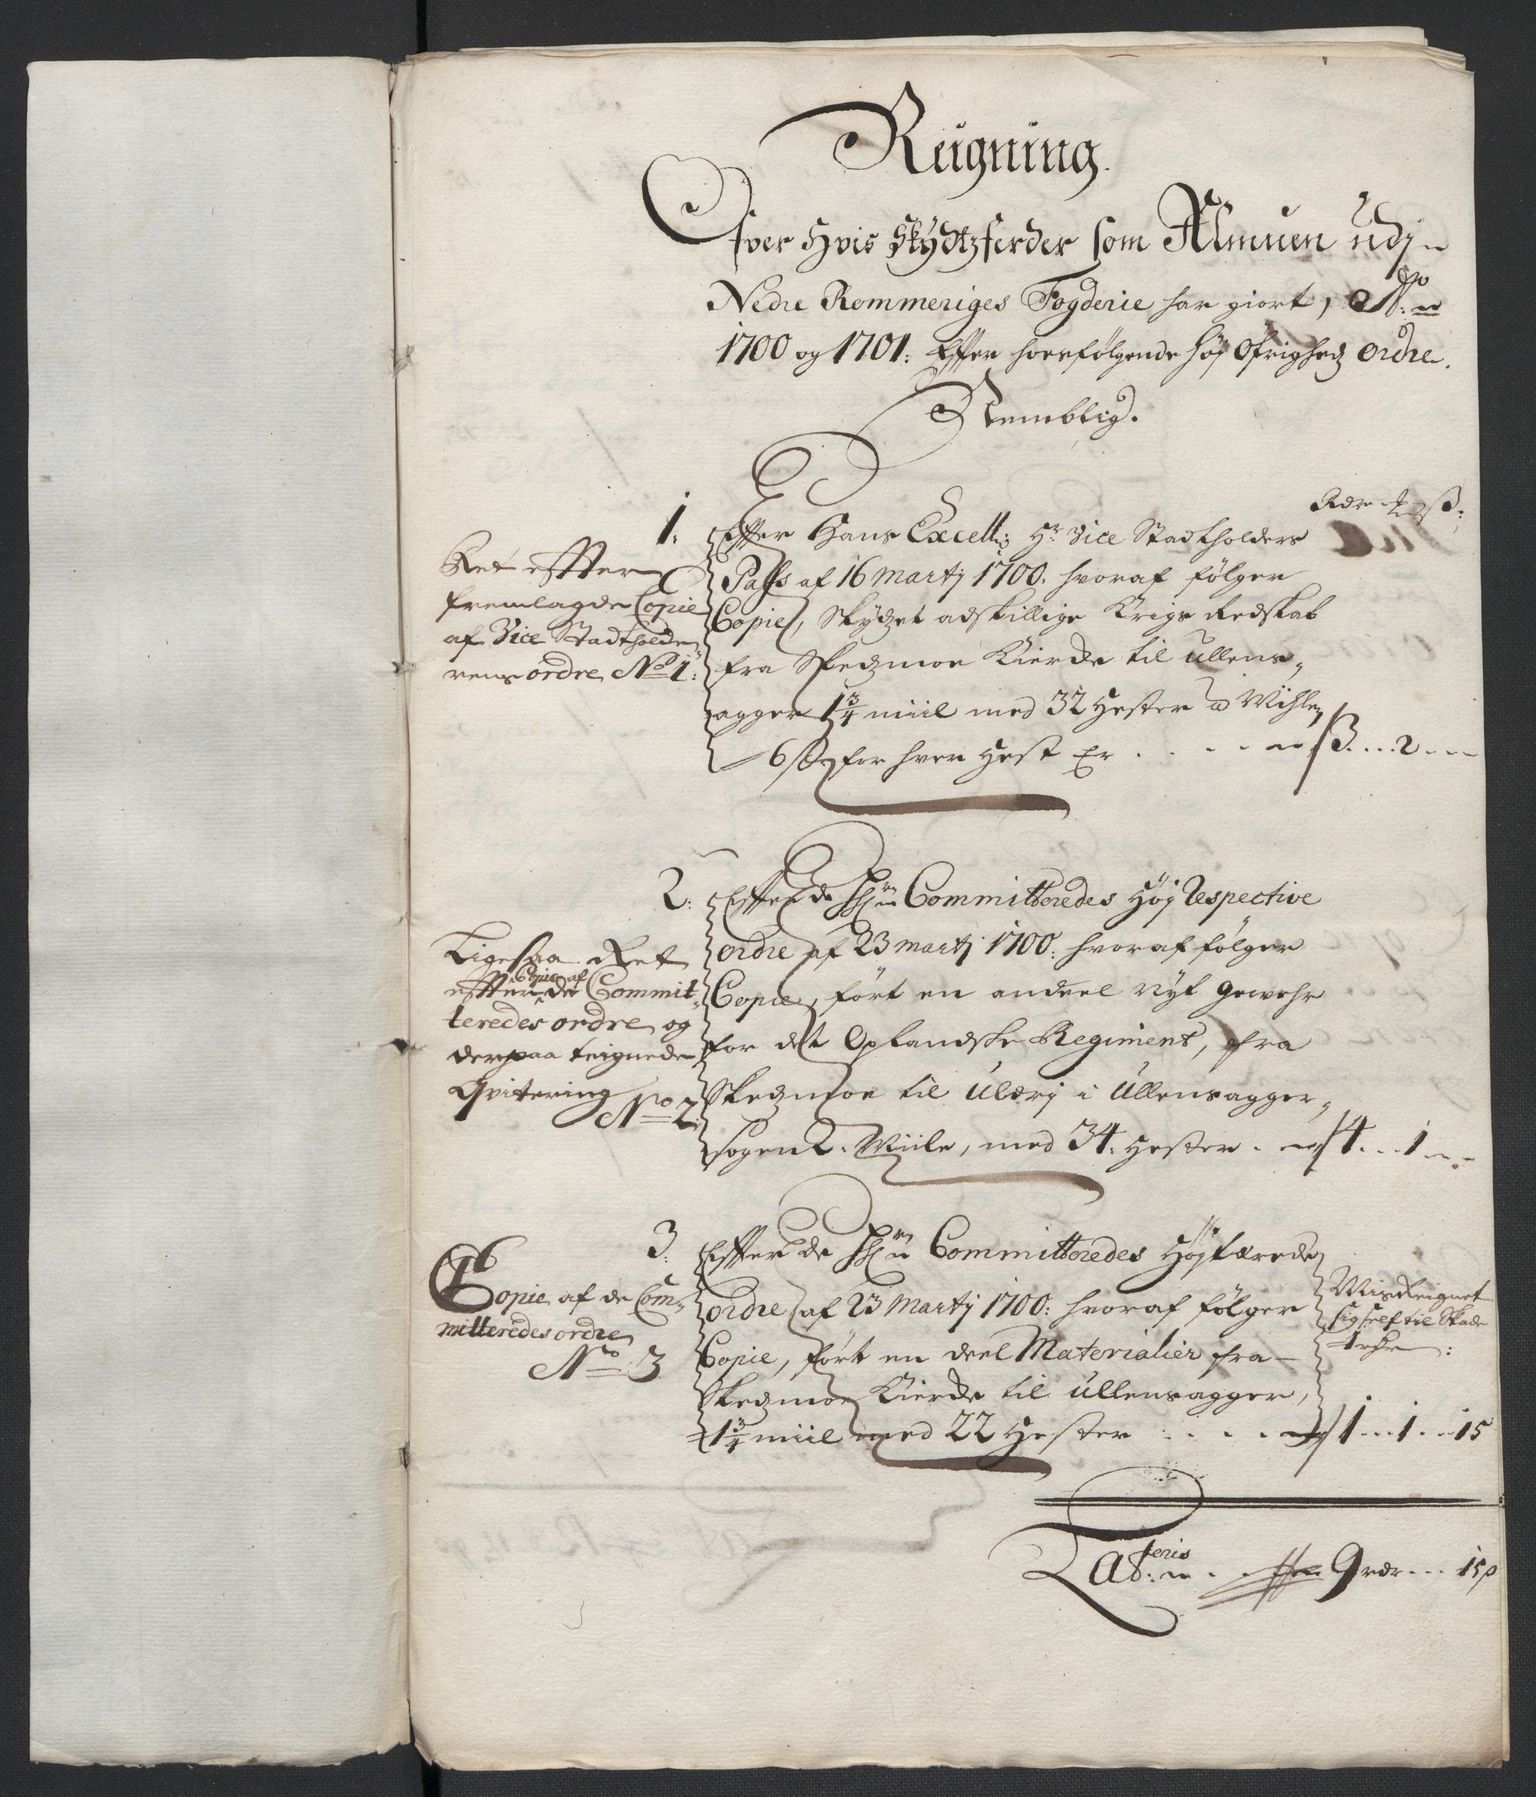 Reigning
Ofver Hvis Skydtzferder som Almuen udj
Nedre Rommeriges Fogderie har giort, Ao
1700 og 1701: Effter hoesfølgende høj Øfrigheds ordre.
Nemblig.
Rdr ß:
1: Effter Hans Excell: Hr Vice Stadtholders
Pass af 16 Martj 1700. hvoraf følger
Copie, Skydzet adskillige Krigs Redskab
fra Skedzmoe Kierche til Ullens-
agger 1 3/4 miil med 32 Hester a Miihlen
6 ß for hver Hest Er . . . . 3 . . . 2
Ret effter
fremlagde Copie
af Vice Stadtholde
rens ordre No 1:
2: Effter de Hrr Committeredes Høj Respective
ordre af 23 martj 1700: hvoraf følger
Copie, ført en andeel Nyt gewehr
for det Oplandske Regiment, fra
Skedzmoe til Ulærj i Ullensagger
Sogen 2. Miile, med 34. Hester . 4 . . . 1
Ligesaa Ret
effter de Commit-
Copie af
teredes ordre og
derpaa teignede
Qvittering
No 2
3: Effter de Hrr Committeredes Højærede
ordre af 23 Martj 1700: hvoraf følger
Copie, ført en deel Materialier fra
Skedzmoe Kierche til Ullensagger,
1 3/4 miil med 22 Hester . . . . 1 . . 1 . . 15
Copie af de Com-
mitteredes ordre
No 3
Misreignet
sig self til Skade
Lateris . . . 9 rdr . . . 15 ß